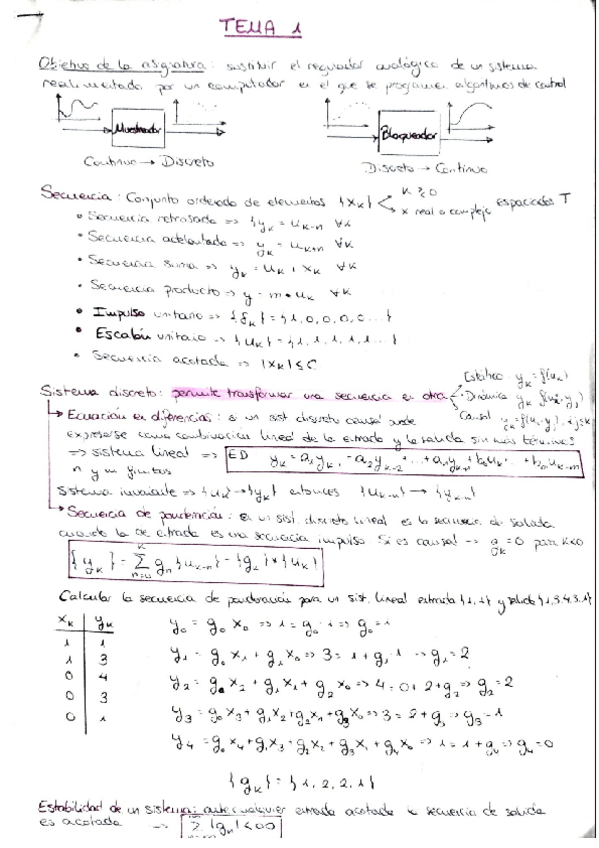 TEMA 1
Objetivo de la asignatura: sustituir el regulador analógico de un sistema
realimentado por un computador en el que se programen algoritmos de control
Muestreador
Bloqueador
Continuo → Discreto
Discreto → Continuo
Secuencia: Conjunto ordenado de elementos {xk} k ≥ 0
x real o complejo espaciados T
• Secuencia retrasada => yk = uk-n ∀k
• Secuencia adelantada => yk = uk+n ∀k
• Secuencia suma => yk = uk + xk ∀k
• Secuencia producto => y = m • uk ∀k
• Impulso unitario => {δk} = {1, 0, 0, 0, ...}
• Escalón unitario => {uk} = {1, 1, 1, 1, ...}
• Secuencia acotada => |xk| ≤ C
Sistema discreto: permite transformar una secuencia en otra
Estático yk = f(uk)
Dinámico yk
Causal
Ecuación en diferencias: si un sist discreto causal puede
expresarse como combinación lineal de la entrada y la salida sin más términos
=> sistema lineal => ED
n y m finitos
Sistema invariante => {uk} → {yk} entonces {uk-n} → {yk-n}
Secuencia de ponderación: en un sist. discreto lineal es la secuencia de salida
cuando la de entrada es una secuencia impulso. Si es causal → gk = 0 para k<0
{yk} = Σ gn {uk-n} = {gk} * {uk}
Calcular la secuencia de ponderación para un sist. lineal entrada {1,1} y salida {1,3,4,3,1}
xk yk
1 1
1 3
0 4
0 3
0 1
y0 = g0 x0 => 1 = g0 · 1 => g0 = 1
y1 = g0 x1 + g1 x0 => 3 = 1 + g1 · 1 => g1 = 2
y2 = g0 x2 + g1 x1 + g2 x0 => 4 = 0 + 2 + g2 => g2 = 2
y3 = g0 x3 + g1 x2 + g2 x1 + g3 x0 => 3 = 2 + g3 => g3 = 1
y4 = g0 x4 + g1 x3 + g2 x2 + g3 x1 + g4 x0 => 1 = 1 + g4 => g4 = 0
{gk} = {1, 2, 2, 1}
Estabilidad de un sistema: ante cualquier entrada acotada la secuencia de salida
es acotada → Σ |gn| < ∞